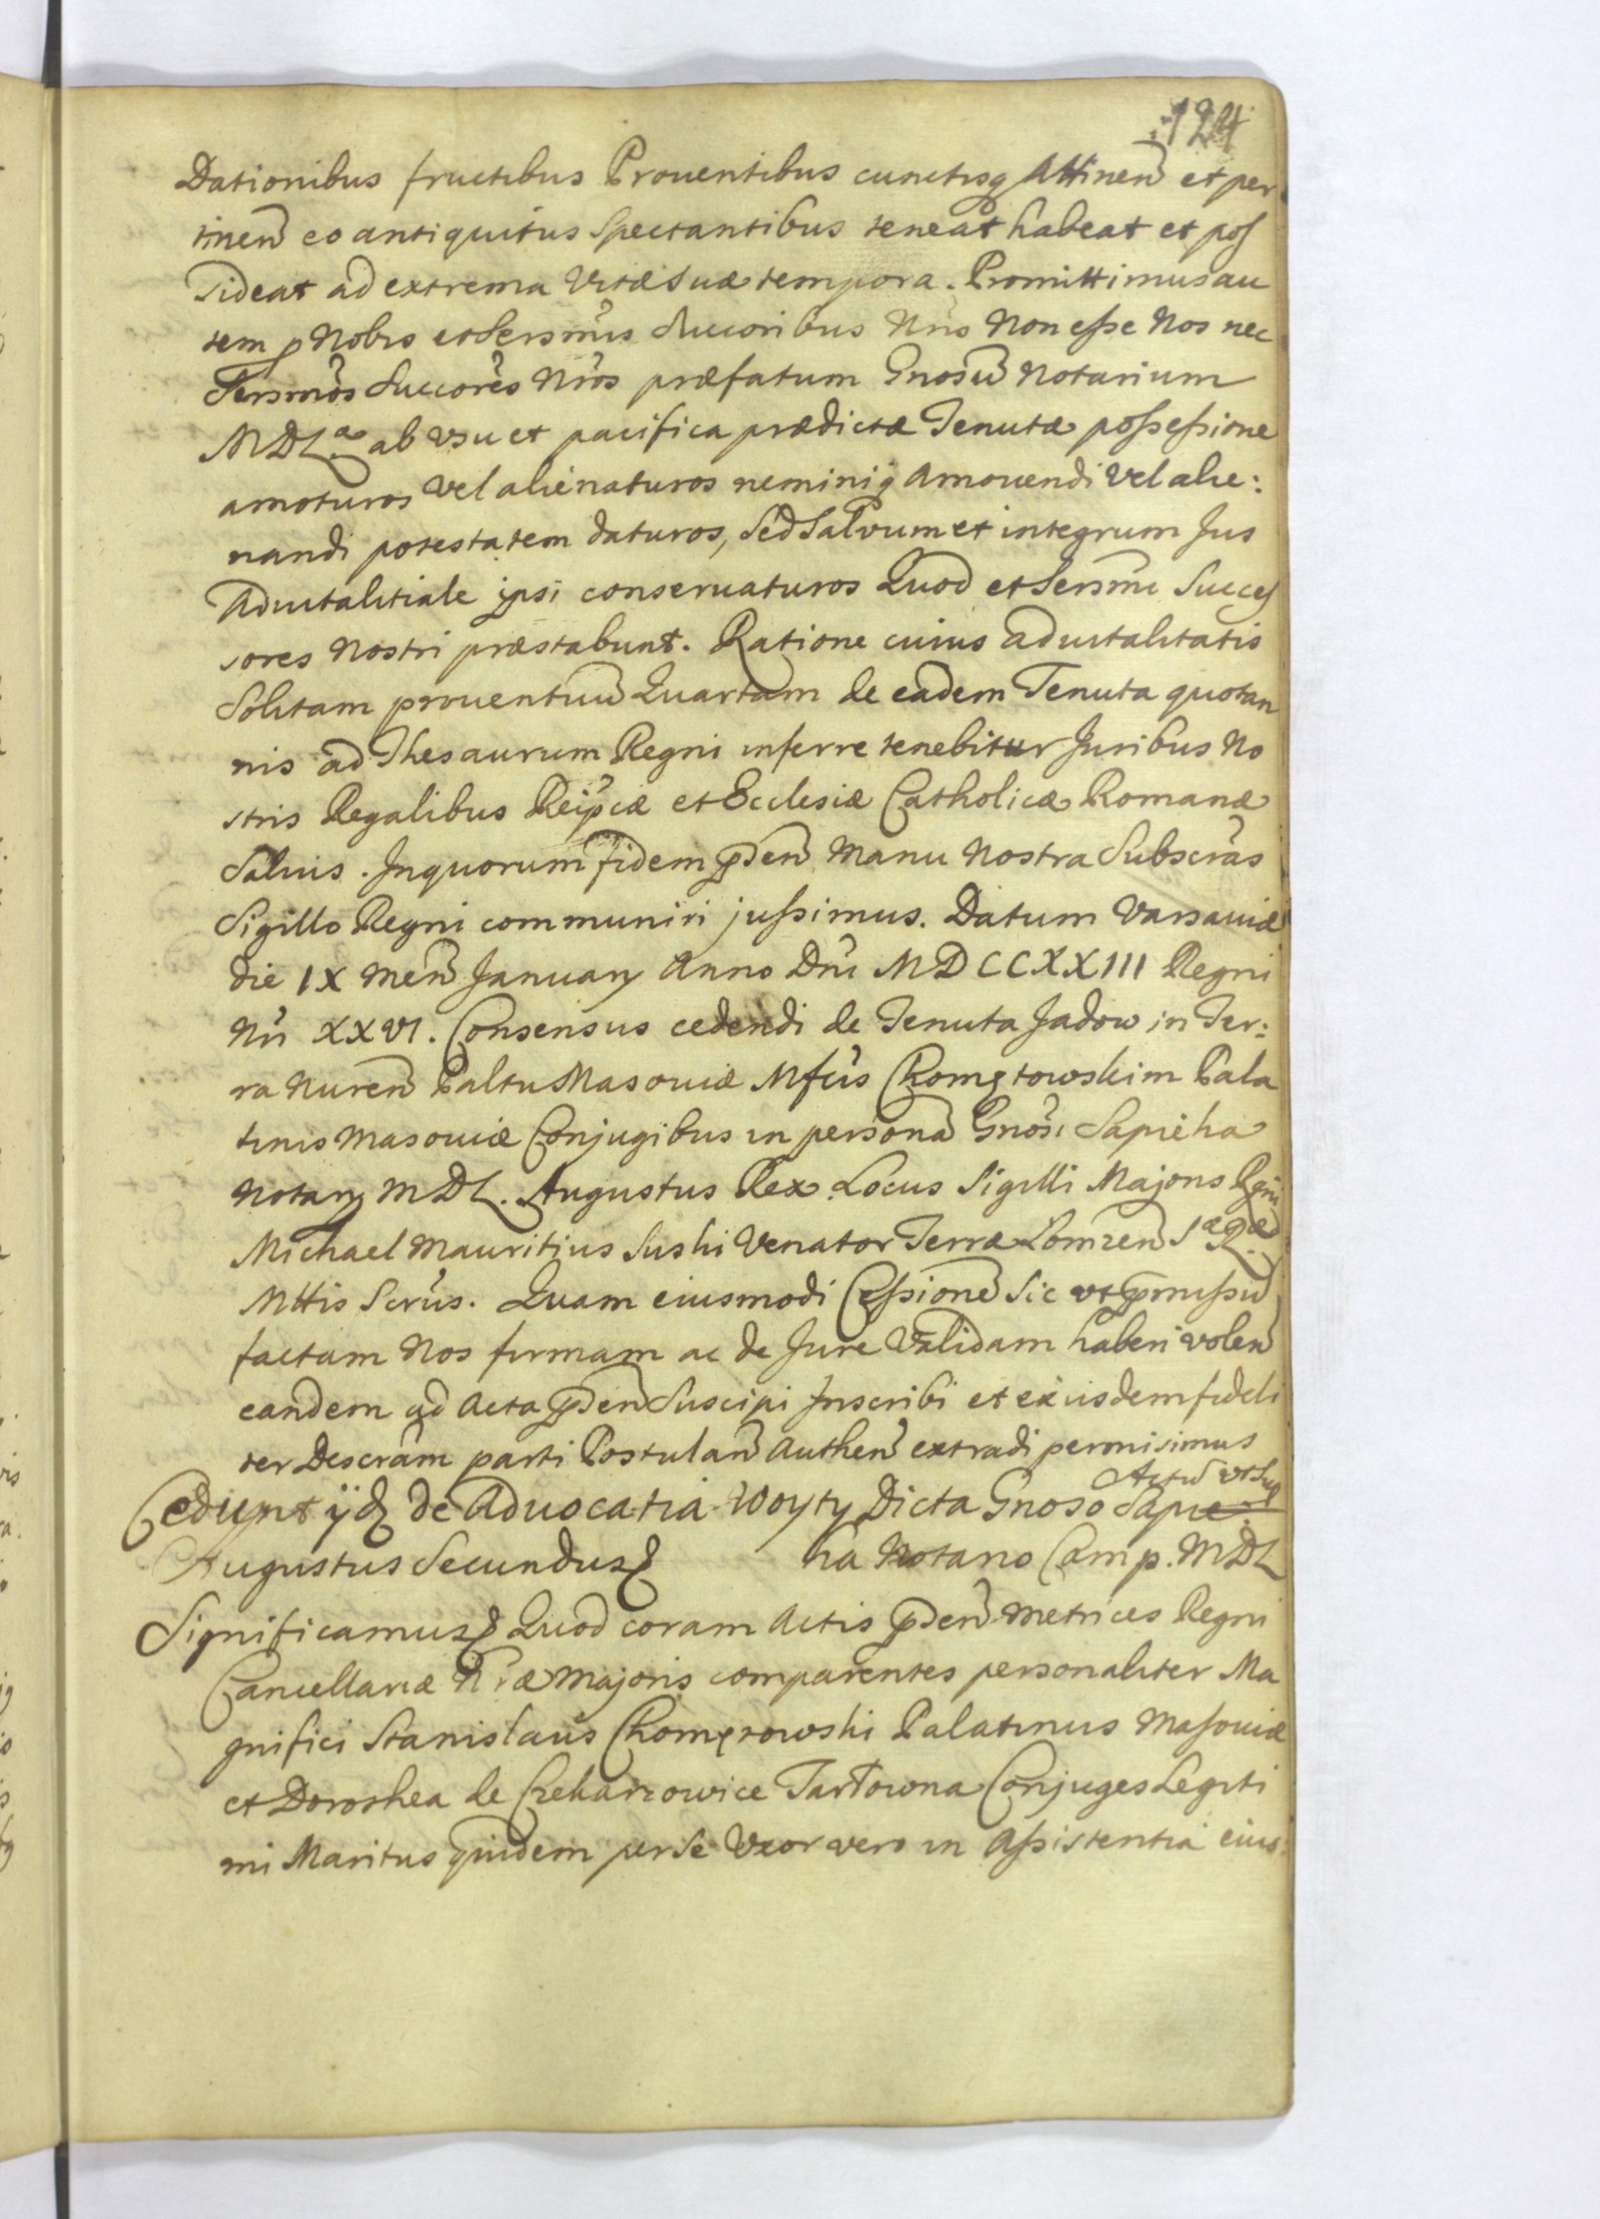 124
Dationibus fructibus Prouentibus cunctisq Attinen et per
tinen eo antiquitus Spectantibus teneat habeat et pos
sideat ad extrema Vitæ suæ tempora. Promittimus au
tem p Nobis et Sersmis Succoribus Nris Non esse Nos nec
Sersmos Succores Nros præfatum Gnosum Notarium
MDL ab vsu et pacifica prædictæ Tenutæ possessione
amoturos Vel alienaturos neminiq Amouendi Vel alie:
nandi potestatem daturos, Sed Salvum et integrum Jus
Aduitalitiale ipsi conseruaturos Quod et Sersmi Succes
sores Nostri præstabunt. Ratione cuius aduitalitatis
Solitam prouentuum Quartam de eadem Tenuta quotan
nis ad Thesaurum Regni inferre tenebitur Juribus No
stris Regalibus Reipcæ et Ecclesiæ Catholicæ Romanæ
Saluis. In quorum fidem pden Manu Nostra Subscras
Sigillo Regni communiri jussimus. Datum Varsauiæ
die IX Men January Anno Dni MDCCXXIII Regni
Nri XXVI. Consensus cedendi de Tenuta Jadow in Ter:
ra Nuren Paltu Masouiæ Mfcis Chomętowskim Pala
tinis Masouiæ Conjugibus in persona Gnosi Sapieha
Notary MDL. Augustus Rex. Locus Sigilli Majoris Rgni
Michael Mauritius Suski Venator Terræ Lomzen Sæ Ræ
Mttis Scrius. Quam eiusmodi Cessione Sic vt pmissu
factam Nos firmam ac de Jure Validam haberi volen
eandem ad Acta pden Suscipi Inscribi et ex iisdem fideli
ter Descram parti Postulan Authen extradi permisimus
Actu vt sup
Cedunt ijd de Aduocatia Woyty Dicta Gnoso Sapie
Augustus Secundus ha Notario Camp. MDL
Significamus Quod coram Actis pden Metrices Regni
Cancellariæ Nræ Majoris comparentes personaliter Ma
gnifici Stanislaus Chomętowski Palatinus Masouiæ
et Dorothea de Czekarzowice Tarłowna Conjuges Legiti
mi Maritus quidem per se Vxor vero in Assistentia eius